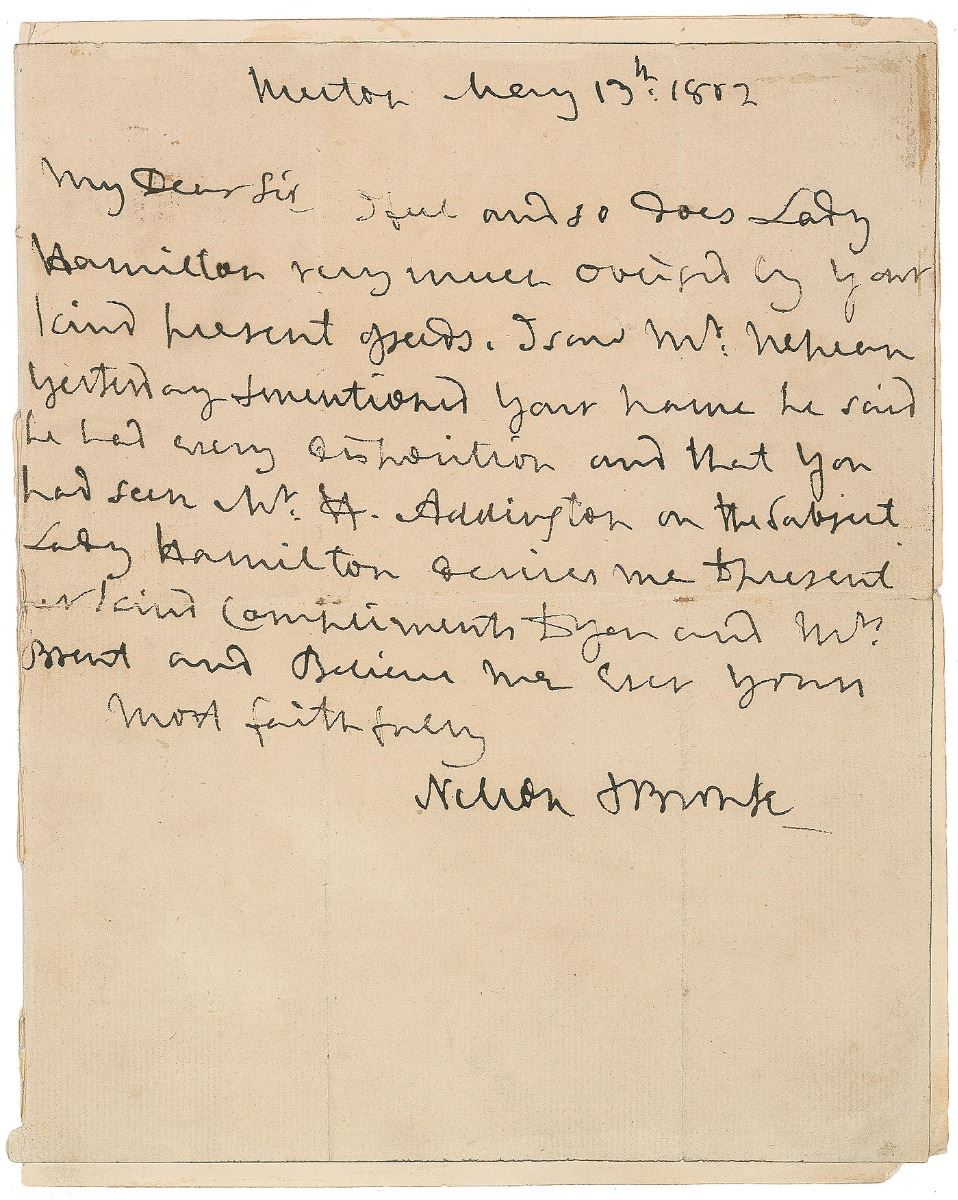 Merton May 13th: 1802
My Dear Sir I feel and so does Lady
Hamilton very much obliged by your
kind present of seeds. I saw Mr: Nepean
yesterday & mentioned your name he said
he had every disposition and that you
had seen Mr. H. Addington on the Subject
Lady Hamilton desires me to present
her kind Compliments to you and Mrs:
Brent and Believe me Ever yours
most faithfully
Nelson & Bronte